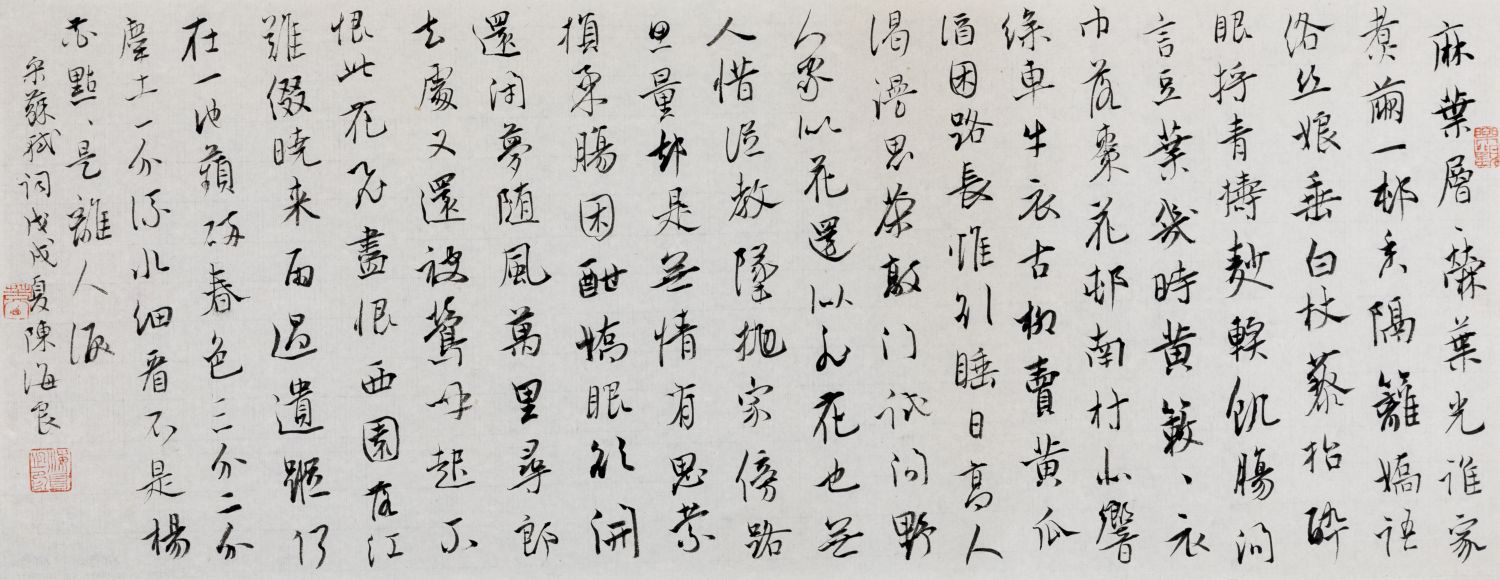 麻葉層、檾葉光誰家
煮繭一邨香隔籬嬌語
络丝娘垂白杖藜抬醉
眼捋青擣麨輭飢腸问
言豆葉幾時黄簌、衣
巾落棗花邨南村北響
繰車牛衣古柳賣黄瓜
酒困路長惟引睡日高人
渴漫思茶敲门試问野
人家似花還似非花也無
人惜從教墜抛家傍路
思量却是無情有思縈
損柔腸困酣嬌眼欲開
還閉夢随風萬里尋郎
去處又還被鶯呼起不
恨此花飛盡恨西園落红
難綴曉来雨過遺蹤何
在一池蘋碎春色三分二分
塵土一分流水细看不是楊
花點、是離人淚
宋蘇軾词戊戌夏陳海良